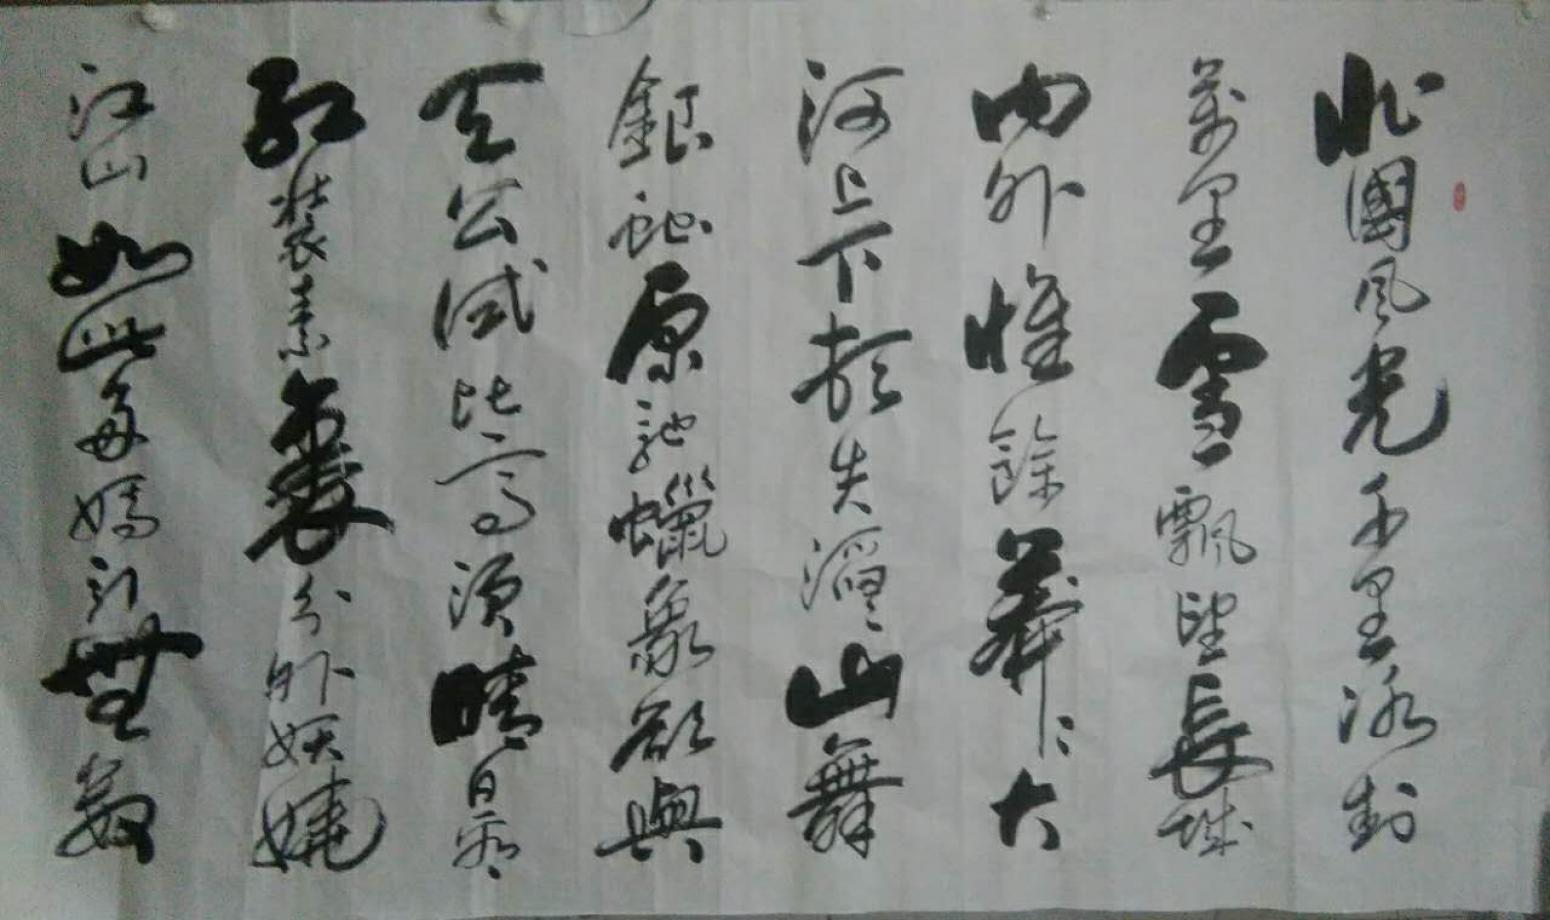 北國風光千里冰封
萬里雪飄望長城
內外惟餘莽〻大
河上下頓失滔〻山舞
銀蛇原馳蠟象欲與
天公試比高須晴日看
紅裝素裹分外妖嬈
江山如此多嬌引無數